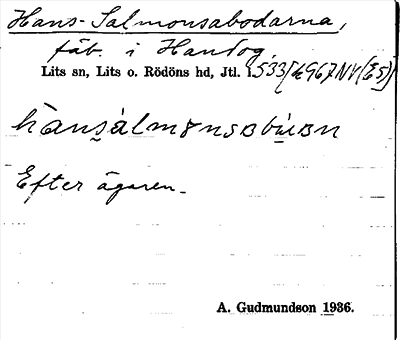 Hans-Salmonsabodarna,
fäb. i Handog,
Lits sn, Lits o. Rödöns hd, Jtl.
hànsálmɤnsɒbùɒn
Efter ägaren.
A. Gudmundson 1936.